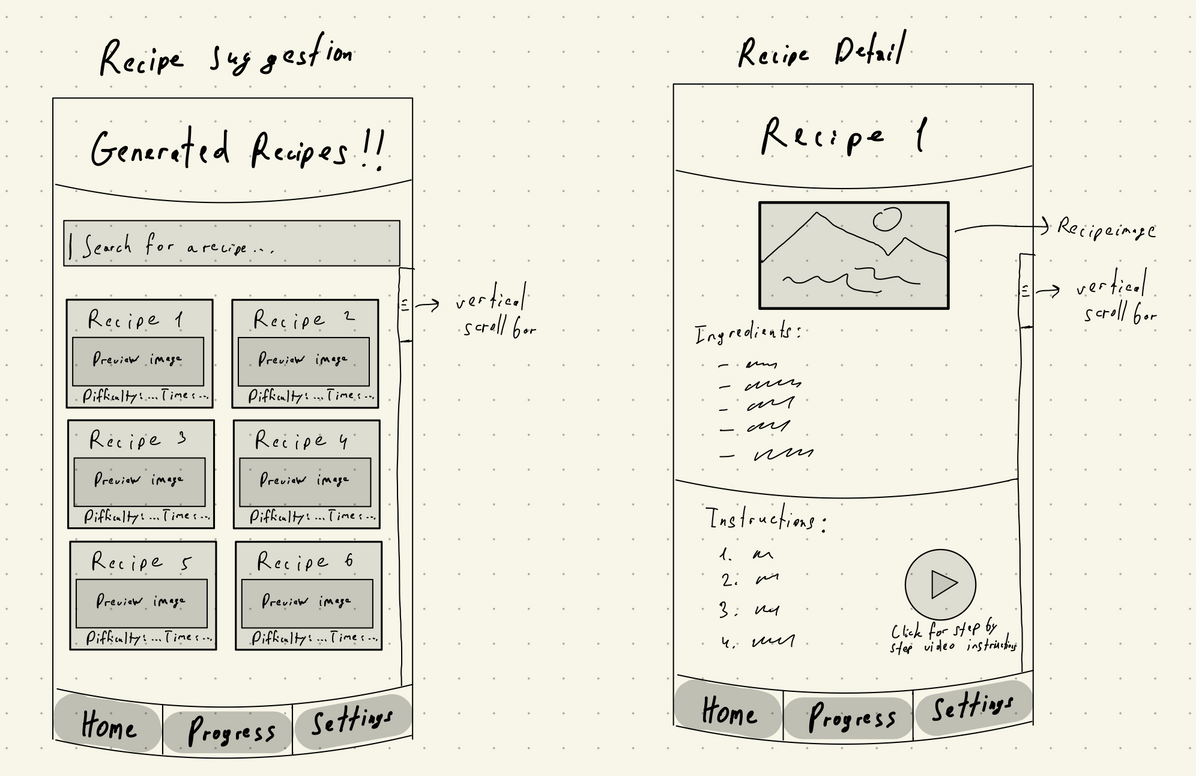 Recipe Suggestion
Generated Recipes!!
Search for a recipe...
Recipe 1
Preview image
Difficulty:... Time:...
Recipe 2
Preview image
Difficulty:... Time:...
vertical
scroll bar
Recipe 3
Preview image
Difficulty:... Time:...
Recipe 4
Preview image
Difficulty:... Time:...
Recipe 5
Preview image
Difficulty:... Time:...
Recipe 6
Preview image
Difficulty:... Time:...
Home
Progress
Settings
Recipe Detail
Recipe 1
Recipeimage
vertical
scroll bar
Ingredients:
Instructions:
1.
2.
3.
4.
Click for step by
step video instructions
Home
Progress
Settings